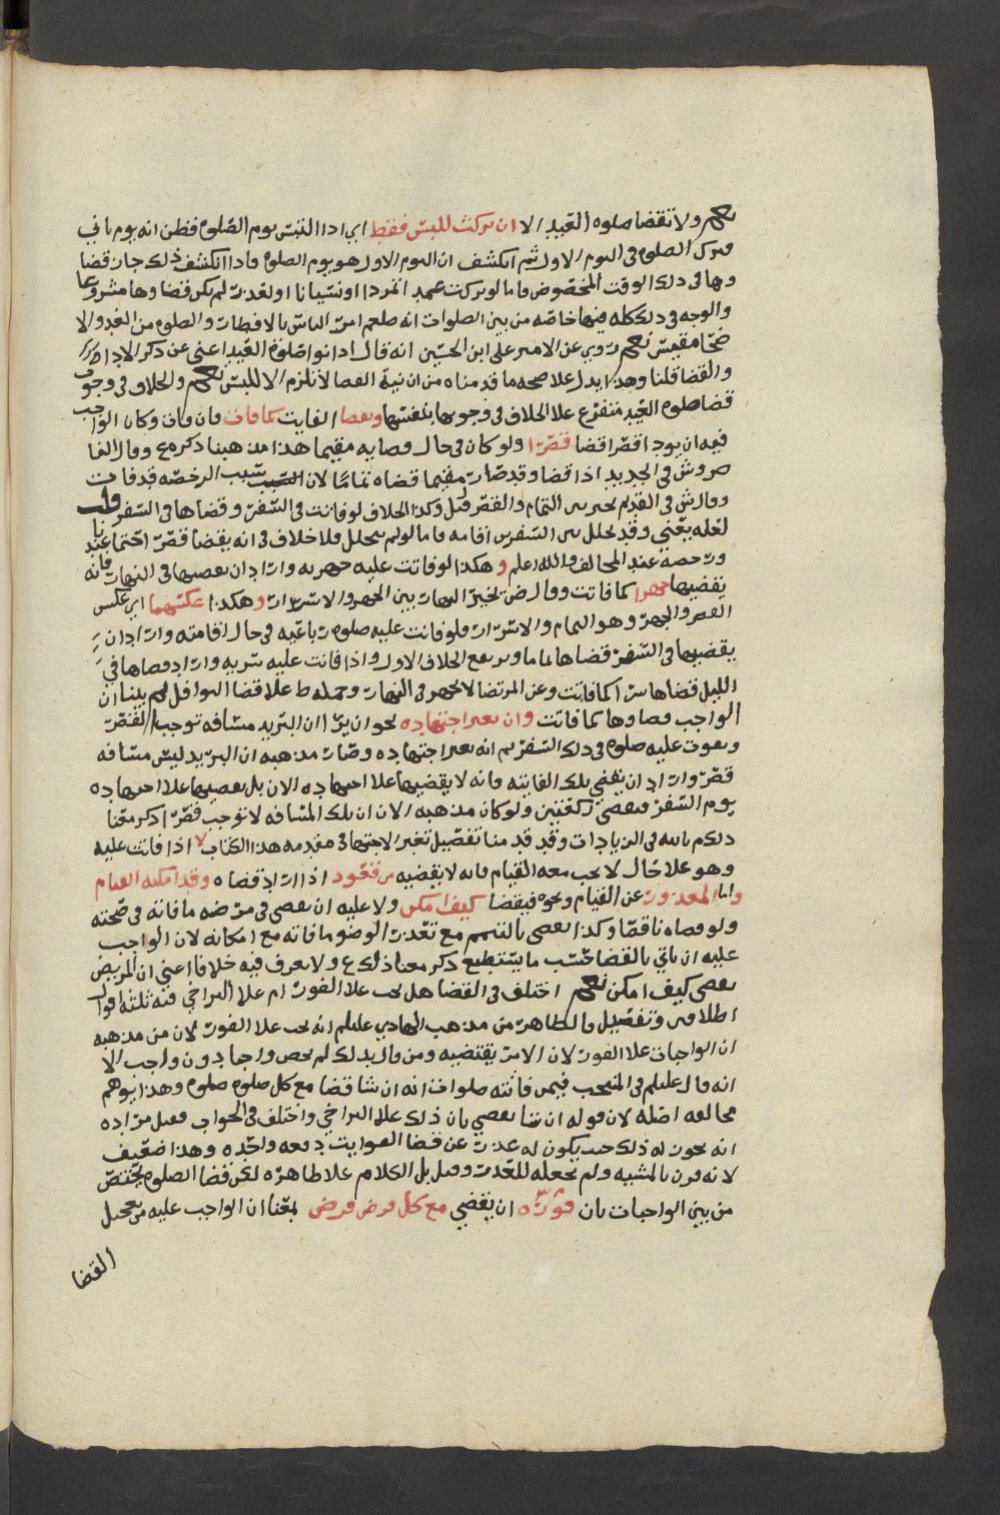 ولا تقضا صلوه العيد الا ان تركت للبس فقط اي اذا التبس يوم الصلوه فظن انه يوم ثاني
فترك الصلوه في اليوم الاول ثم انكشف ان اليوم الاول هو يوم الصلوه فاذا انكشف ذلك جاز قضا
وها في ذلك الوقت المخصوص فاما لو تركت عمدا تمردا او نسيانا او لعذر لم يكن قضاوها مشروعا
والوجه في ذلك كله فيها خاصه من بين الصلوات انه صلعم امر الناس بالافطار والصلوه من الغد والا
روي عن الامير علي ابن الحسين انه قال اذا نوا صلوه العيد اغنى عن ذكر الادا
والقضا قلنا وهذا يدل علا صحه ما قدمناه من ان نية القضا لا تلزم الا للبس والخلاف في وجوب
قضا صلوه العيد متفرع علا الخلاف في وجوبها بنفسها وبقضا الفايت كما فات فان فات وكان الواجب
فيه ان يودا قصرا قضا قصرا ولو كان في حال قضايه مقيما هذا مذهبنا ذكره ع وقال
ش في الجديد اذا قضا وقد صار مقيما قضاه تماما لان سبب الرخصه قد فات
وقال ش في القديم يخير بين التمام والقصر قيل وكذا الخلاف لو فاتت في السفر وقضاها في السفر قلت
لعله يعني وقد تخلل بين السفرين اقامه فاما لو لم يتخلل فلا خلاف في انه يقضا قصرا حتما عندنا
ورخصة عند المخالف والله اعلم وهكذا لو فاتت عليه جهريه واراد ان يقضيها في النهار فانه
يقضيها جهرا كما فاتت وقال ض تخير النهار بين الجهر والاسرار وهكذا عكسهما اي عكس
القصر والجهر وهو التمام والاسرار فلو فاتت عليه صلوه رباعيه في حال اقامته واراد ان
يقضيها في السفر قضاها تماما وير تفع الخلاف الاول واذا فاتت عليه سريه واراد قضاها في
الليل قضاها سرا كما فاتت وعن المرتضا لا يجهر في النهار وحمله ط علا قضا النوافل لهم بينا ان
الواجب قضاوها كما فاتت وان تغير اجتهاده نحو ان يرا ان البريد مسافه توجب القصر
وتفوت عليه صلوه في ذلك السفر ثم انه تغير اجتهاده وصار مذهبه ان البريد ليس مسافه
قصر واراد ان يقضي تلك الفايته فانه لا يقضيها علا اجتهاده الان بل يقضيها علا اجتهاده
يوم السفر فيقضي ركعتين ولو كان مذهبه الان ان تلك المسافه لا توجب قصرا ذكر معنا
ذلك م بالله في الزيادات وقد قدمنا تفصيل تغير الاجتهاد في مقدمه هذا الكتاب لا اذا فاتت عليه
وهو علا حال لا يجب معه القيام فانه لا يقضيه من قعود اذا اراد قضاه وقد امكنه القيام
واما المعذور عن القيام ونحوه فيقضا كيف امكن ولا عليه ان يقضي في مرضه ما فاته في صحته
ولو قضاه ناقصا وكذا يقضي بالتيمم مع تعذر الوضو ما فاته مع امكانه لان الواجب
عليه ان ياتي بالقضا حسب ما يستطيع ذكر معنا ذلك ع ولا يعرف فيه خلافا اعني ان المريض
يقضي كيف امكن اختلف في القضا هل يجب علا الفور ام علا التراخي فيه ثلثه اقوال
اطلاقين وتفصيل فالظاهر من مذهب الهادي عليلم انه يجب علا الفور لان من مذهبه
ان الواجبات علا الفور لان الامر يقتضيه ومن قال بذلك لم يخص واجبا دون واجب الا
انه قال عليلم في المنتخب فيمن فاتته صلوات انه ان شا قضا مع كل صلوه صلوه وهذا يوهم
مخالفه اصله لان قوله ان شا يقضي بان ذلك علا التراخي واختلف في الجواب فقيل مراده
انه يجوز له ذلك حيث يكون له عذر عن قضا الفوايت دفعه واحده وهذا ضعيف
لانه قرن بالمشيه ولم يجعله للعذر وقيل بل الكلام علا ظاهره لكن قضا الصلوه يختص
من بين الواجبات بان فوره ان يقضي مع كل فرض فرض لمعنا ان الواجب عليه من تعجيل
القضا